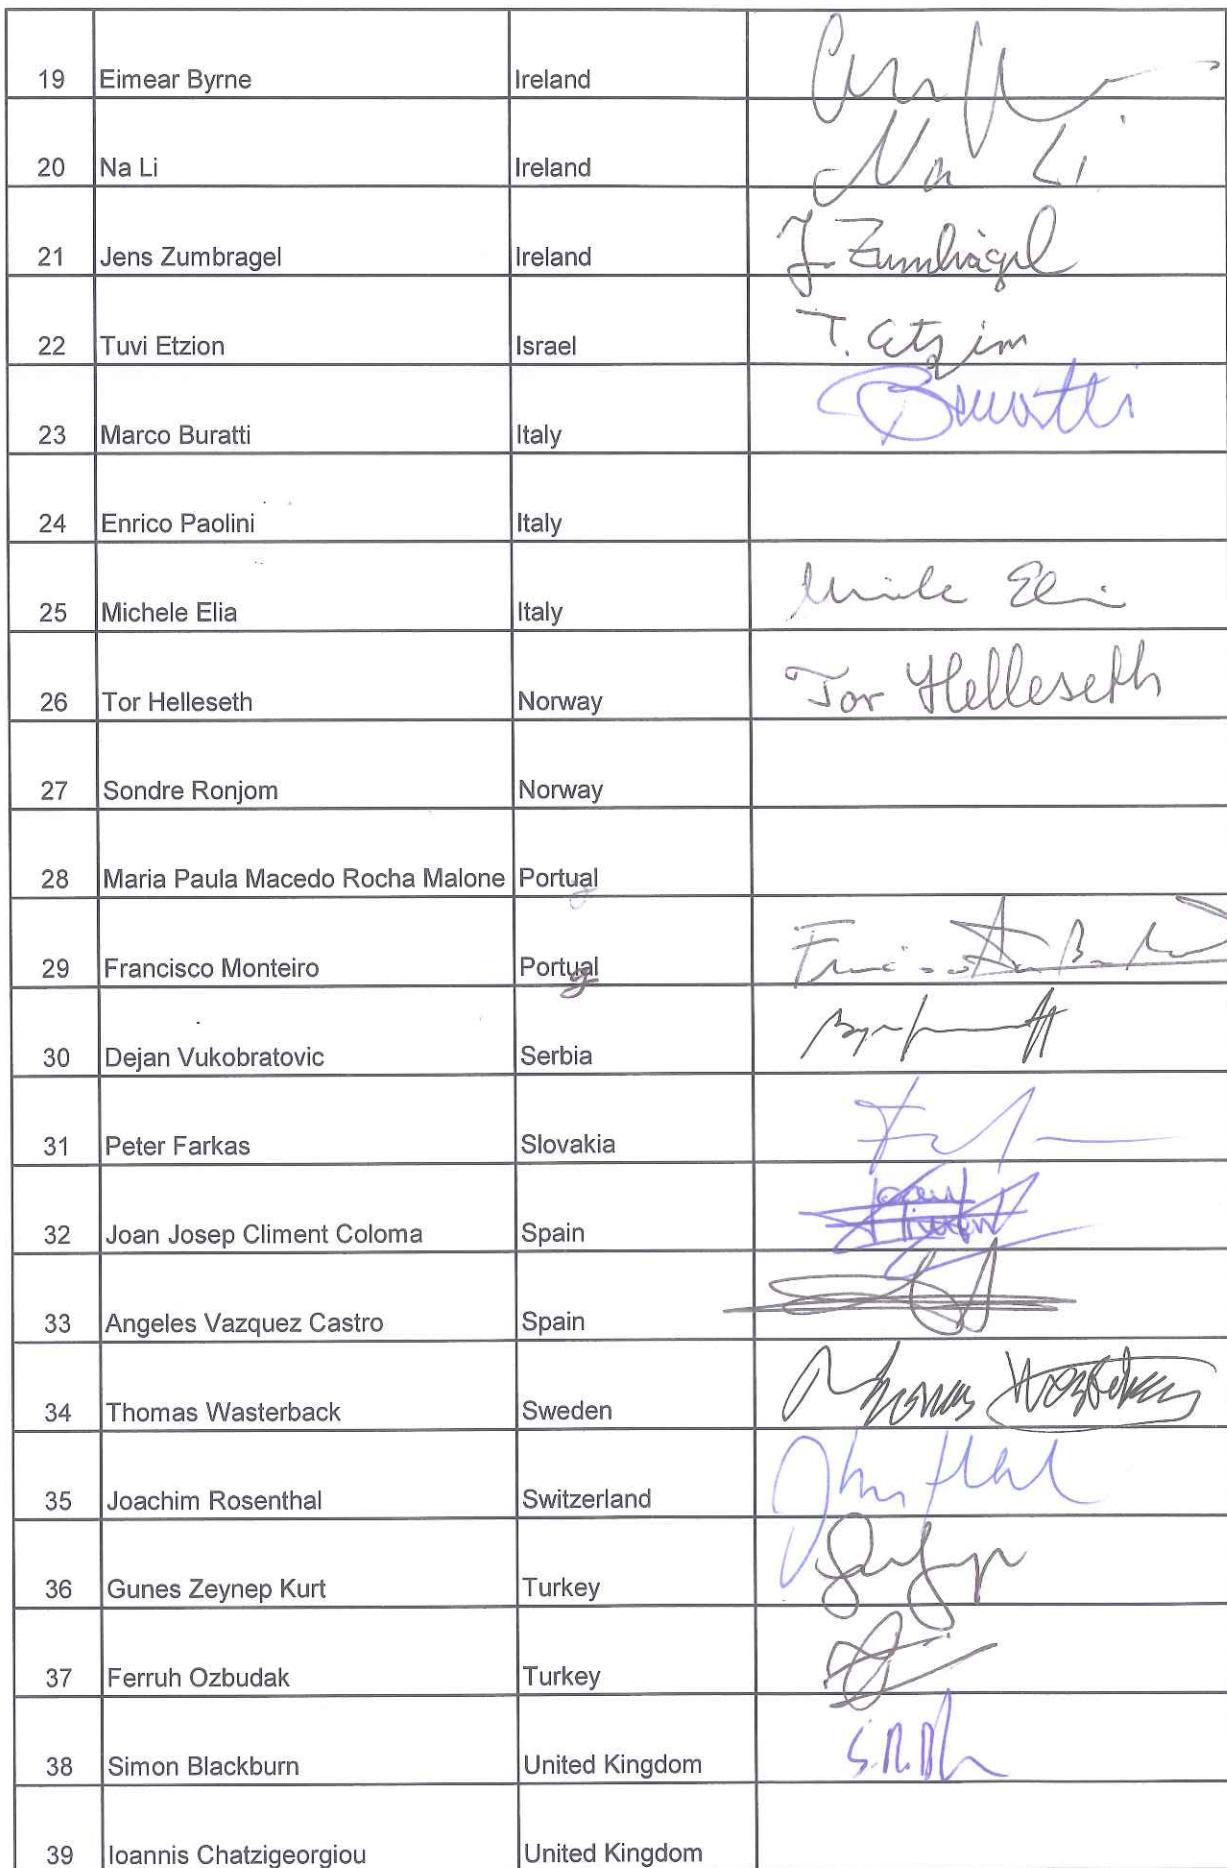 19 Eimear Byrne Ireland
20 Na Li Ireland Na Li
21 Jens Zumbragel Ireland J. Zumbrägel
22 Tuvi Etzion Israel T. Etzion
23 Marco Buratti Italy Buratti
24 Enrico Paolini Italy
25 Michele Elia Italy Michele Elia
26 Tor Helleseth Norway Tor Helleseth
27 Sondre Ronjom Norway
28 Maria Paula Macedo Rocha Malone Portual g
29 Francisco Monteiro Portual g
30 Dejan Vukobratovic Serbia
31 Peter Farkas Slovakia
32 Joan Josep Climent Coloma Spain
33 Angeles Vazquez Castro Spain
34 Thomas Wasterback Sweden Thomas
35 Joachim Rosenthal Switzerland
36 Gunes Zeynep Kurt Turkey
37 Ferruh Ozbudak Turkey
38 Simon Blackburn United Kingdom
39 Ioannis Chatzigeorgiou United Kingdom